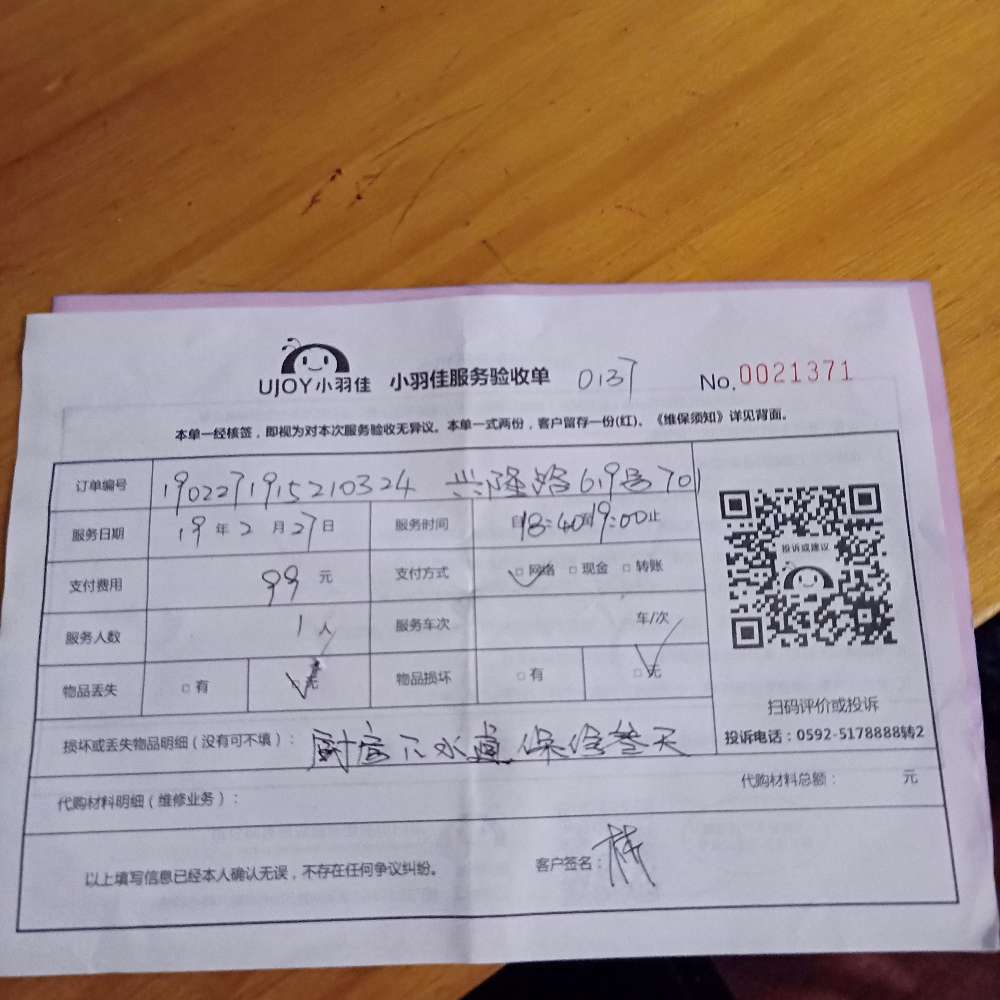 UJOY小羽佳 小羽佳服务验收单 0137 No.0021371
本单一经核签，即视为对本次服务验收无异议。本单一式两份，客户留存一份(红)、《维保须知》详见背面。
订单编号 1902271915210324 兴隆路619号701
服务日期 19年2月27日 服务时间 自18:40到19:00止
支付费用 99元 支付方式 □网络 □现金 □转账
服务人数 1人 服务车次 车/次
物品丢失 □有 □无 物品损坏 □有 □无
投诉或建议
扫码评价或投诉
投诉电话：0592-5178888转2
损坏或丢失物品明细（没有可不填）： 厨房下水道保修叁天
代购材料明细（维修业务）： 代购材料总额： 元
以上填写信息已经本人确认无误，不存在任何争议纠纷。 客户签名：